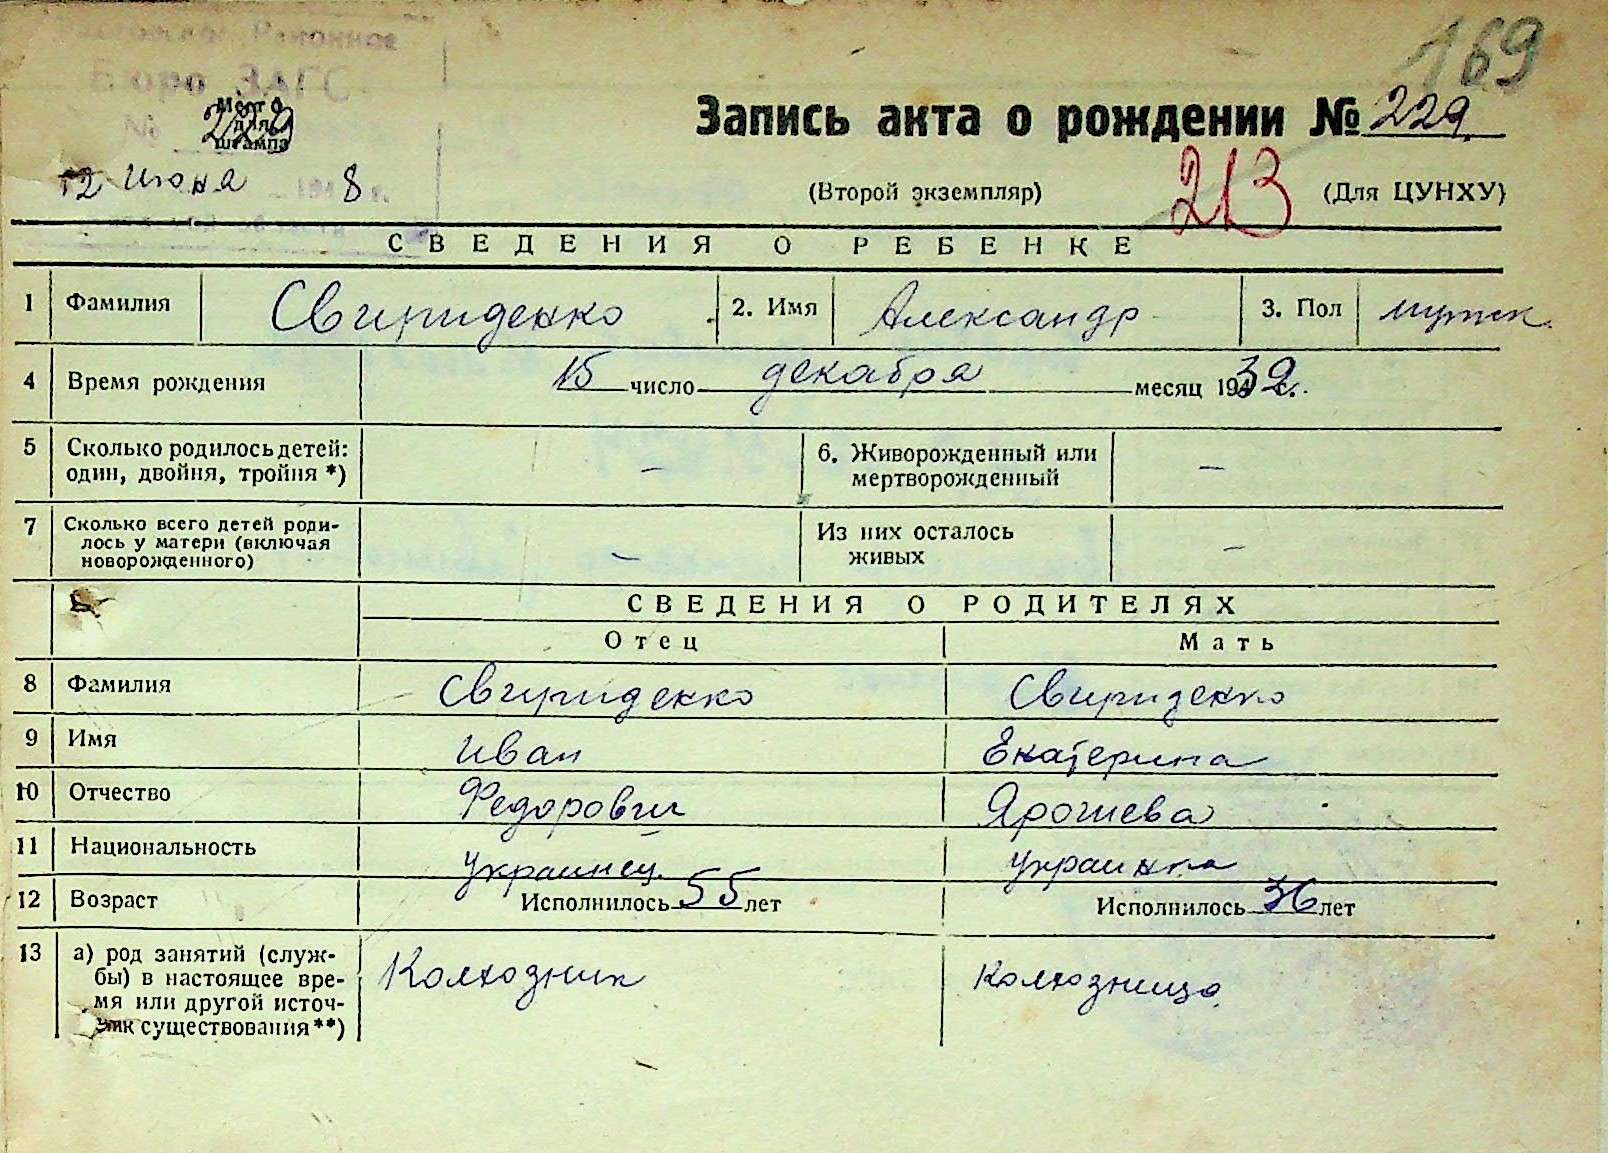 169
Районное
Бюро ЗАГС
Место
для
штампа
№ 229
Запись акта о рождении № 229
12 июня 1948 г.
(Второй экземпляр) 213 (Для ЦУНХУ)
СВЕДЕНИЯ О РЕБЕНКЕ
1 Фамилия Свириденко 2. Имя Александр 3. Пол мужск.
4 Время рождения 15 число декабря месяц 1932 г.
5 Сколько родилось детей: — 6. Живорожденный или —
один, двойня, тройня *) мертворожденный
7 Сколько всего детей роди- — Из них осталось —
лось у матери (включая живых
новорожденного)
СВЕДЕНИЯ О РОДИТЕЛЯХ
Отец Мать
8 Фамилия Свириденко Свириденко
9 Имя Иван Екатерина
10 Отчество Федорович
11 Национальность украинец украинка
12 Возраст Исполнилось 55 лет Исполнилось 36 лет
13 а) род занятий (служ- Колхозник Колхозница
бы) в настоящее вре-
мя или другой источ-
ник существования **)